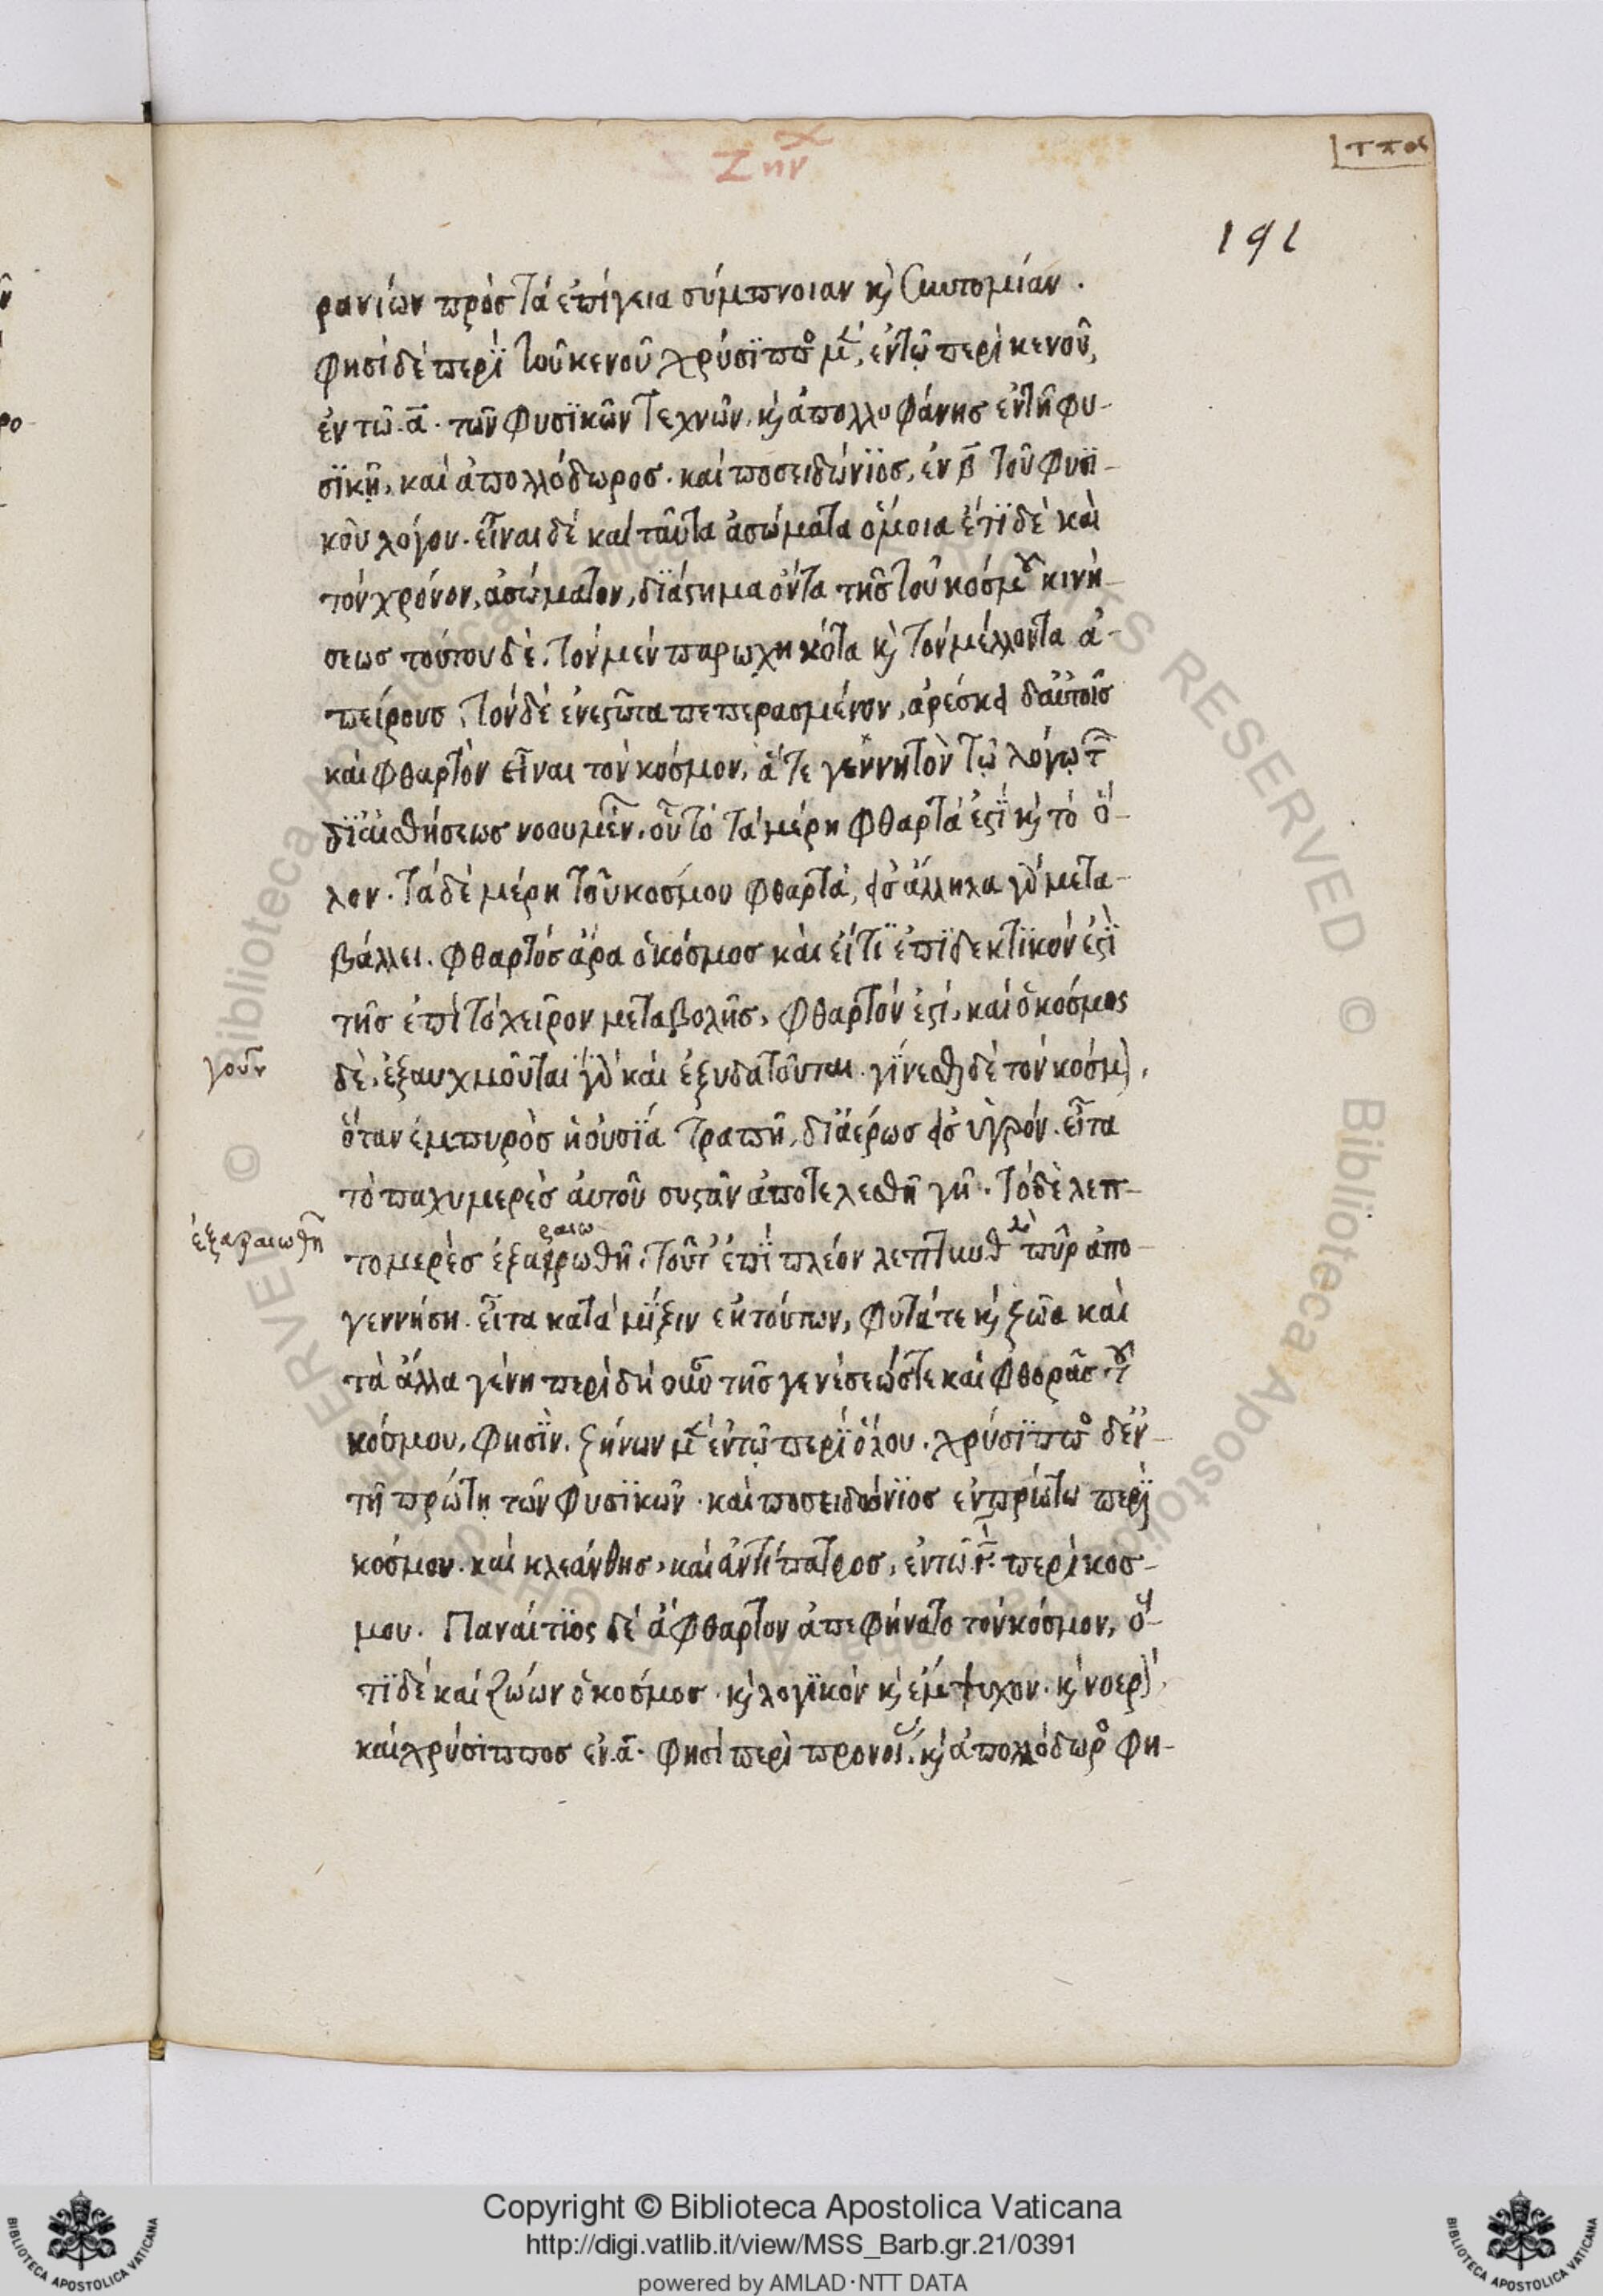 Ζην
τπος
191
ρανίων πρὸς τὰ ἐπίγεια σύμπνοιαν κὶ συντομίαν.
φησὶ δὲ περὶ τοῦ κενοῦ χρύσιππος μὲν, ἐν τῷ περὶ κενοῦ,
ἐν τῶ α. τῶν φυσϊκῶν τεχνῶν. κὶ ἀπολλοφάνης ἐν τῇ φυ-
σϊκῇ, καὶ ἀπολλόδωρος. καὶ ποσειδώνϊος, ἐν β τοῦ φυσϊ-
κοῦ λόγου. εἶναι δὲ καὶ ταῦτα ἀσώματα ὅμοια ἔτϊ δὲ καὶ
τὸν χρόνον, ἀσώματον, δϊάστημα ὄντα τῆς τοῦ κόσμου κινή-
σεως τούτου δὲ, τὸν μὲν παρωχηκότα κὶ τὸν μέλλοντα ἀ-
πείρους, τὸν δὲ ἐνεστῶτα πεπερασμένον, ἀρέσκει δ' αὐτοῖς
καὶ φθαρτὸν εἶναι τὸν κόσμον, ἅτε γεννητὸν τῷ λόγῳ τῶν
δϊ' αἰσθήσεως νοουμένων. οὗτό τὰ μέρη φθαρτά ἐστϊ κὶ τὸ ὅ-
λον. τὰ δὲ μέρη τοῦ κόσμου φθαρτὰ, εἰς ἄλληλα γὰρ μετα-
βάλλει. φθαρτὸς ἄρα ὁ κόσμος καὶ εἴ τϊ ἐπϊδεκτϊκόν ἐστϊ
τῆς ἐπὶ τὸ χεῖρον μεταβολῆς, φθαρτόν ἐστι, καὶ ὁ κόσμος
γοῦν
δὲ, ἐξαυχμοῦται γὰρ καὶ ἐξυδατοῦται. γίνεσθαι δὲ τὸν κόσμον,
ὅταν ἐμπυρὸς ἡ οὐσϊα τραπῇ, δϊ' ἀέρως εἰς ὑγρόν. εἶτα
τὸ παχυμερὲς αὐτοῦ συστὰν ἀποτελεσθῇ γῆ. τὸ δὲ λεπ-
ἐξαραιωθῆ
ραιω
τομερὲς ἐξαερωθῇ. τοῦτ' ἐπὶ πλέον λεπτυνθὲν πῦρ ἀπο-
γεννήση. εἶτα κατὰ μῖξιν ἐκ τούτων, φυτά τε κὶ ζῶα καὶ
τὰ ἄλλα γένη περὶ δὴ οὖν τῆς γενέσεώς τε καὶ φθορᾶς τοῦ
κόσμου, φησϊν. ζήνων μὲν ἐν τῷ περὶ ὅλου. χρύσιππος δ' ἐν
τῇ πρώτῃ τῶν φυσϊκῶν. καὶ ποσειδώνϊος ἐν πρώτω περὶ
κόσμου. καὶ κλεάνθης, καὶ ἀντίπατρος, ἐν τῶ ι. περὶ κοσ-
μου. Παναίτϊος δὲ ἄφθαρτον ἀπεφήνατο τὸν κόσμον, ὅ-
τϊ δὲ καὶ ζώων ὁ κόσμος. κὶ λογϊκόν κὶ ἔμψυχον. κὶ νοερὸν,
καὶ χρύσιππος ἐν α. φησὶ περὶ προνοίας. κὶ ἀπολλόδωρος φη-
Copyright © Biblioteca Apostolica Vaticana
http://digi.vatlib.it/view/MSS_Barb.gr.21/0391
powered by AMLAD·NTT DATA